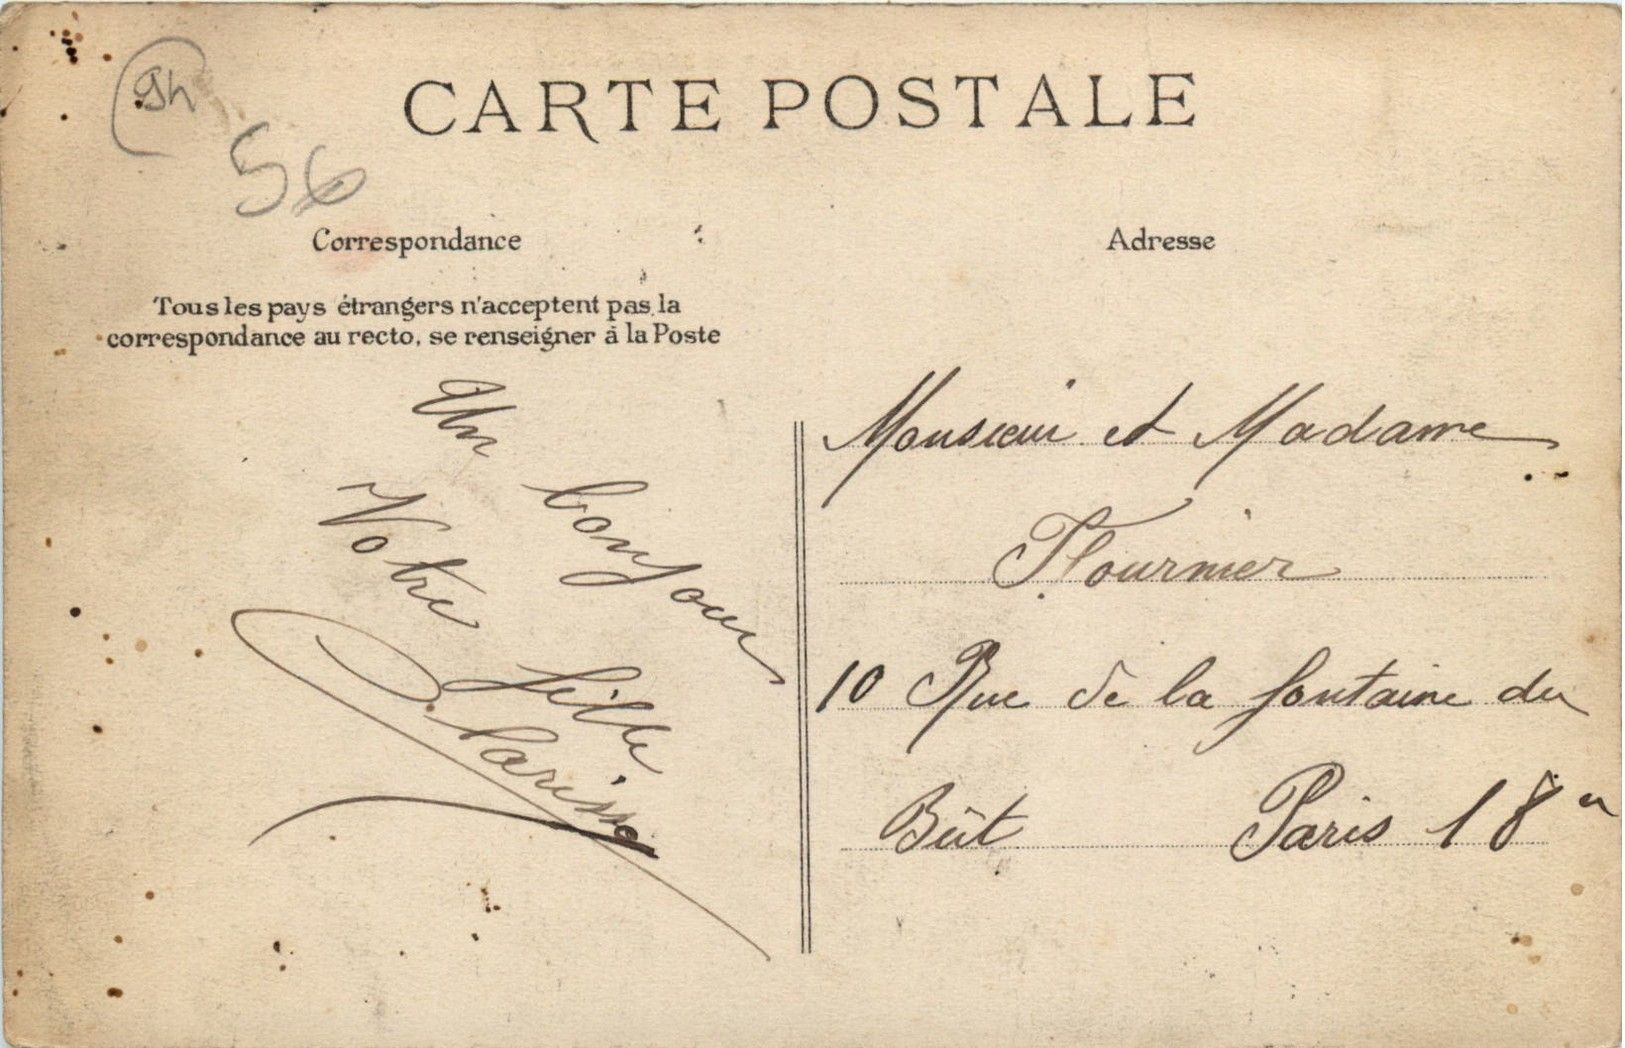 CARTE POSTALE
56
Correspondance
Tous les pays étrangers n'acceptent pas la
correspondance au recto, se renseigner à la Poste
Un bonjour
Votre fille
Clarisse
Adresse
Monsieur et Madame
Flournier
10 Rue de la fontaine du
Bût Paris 18